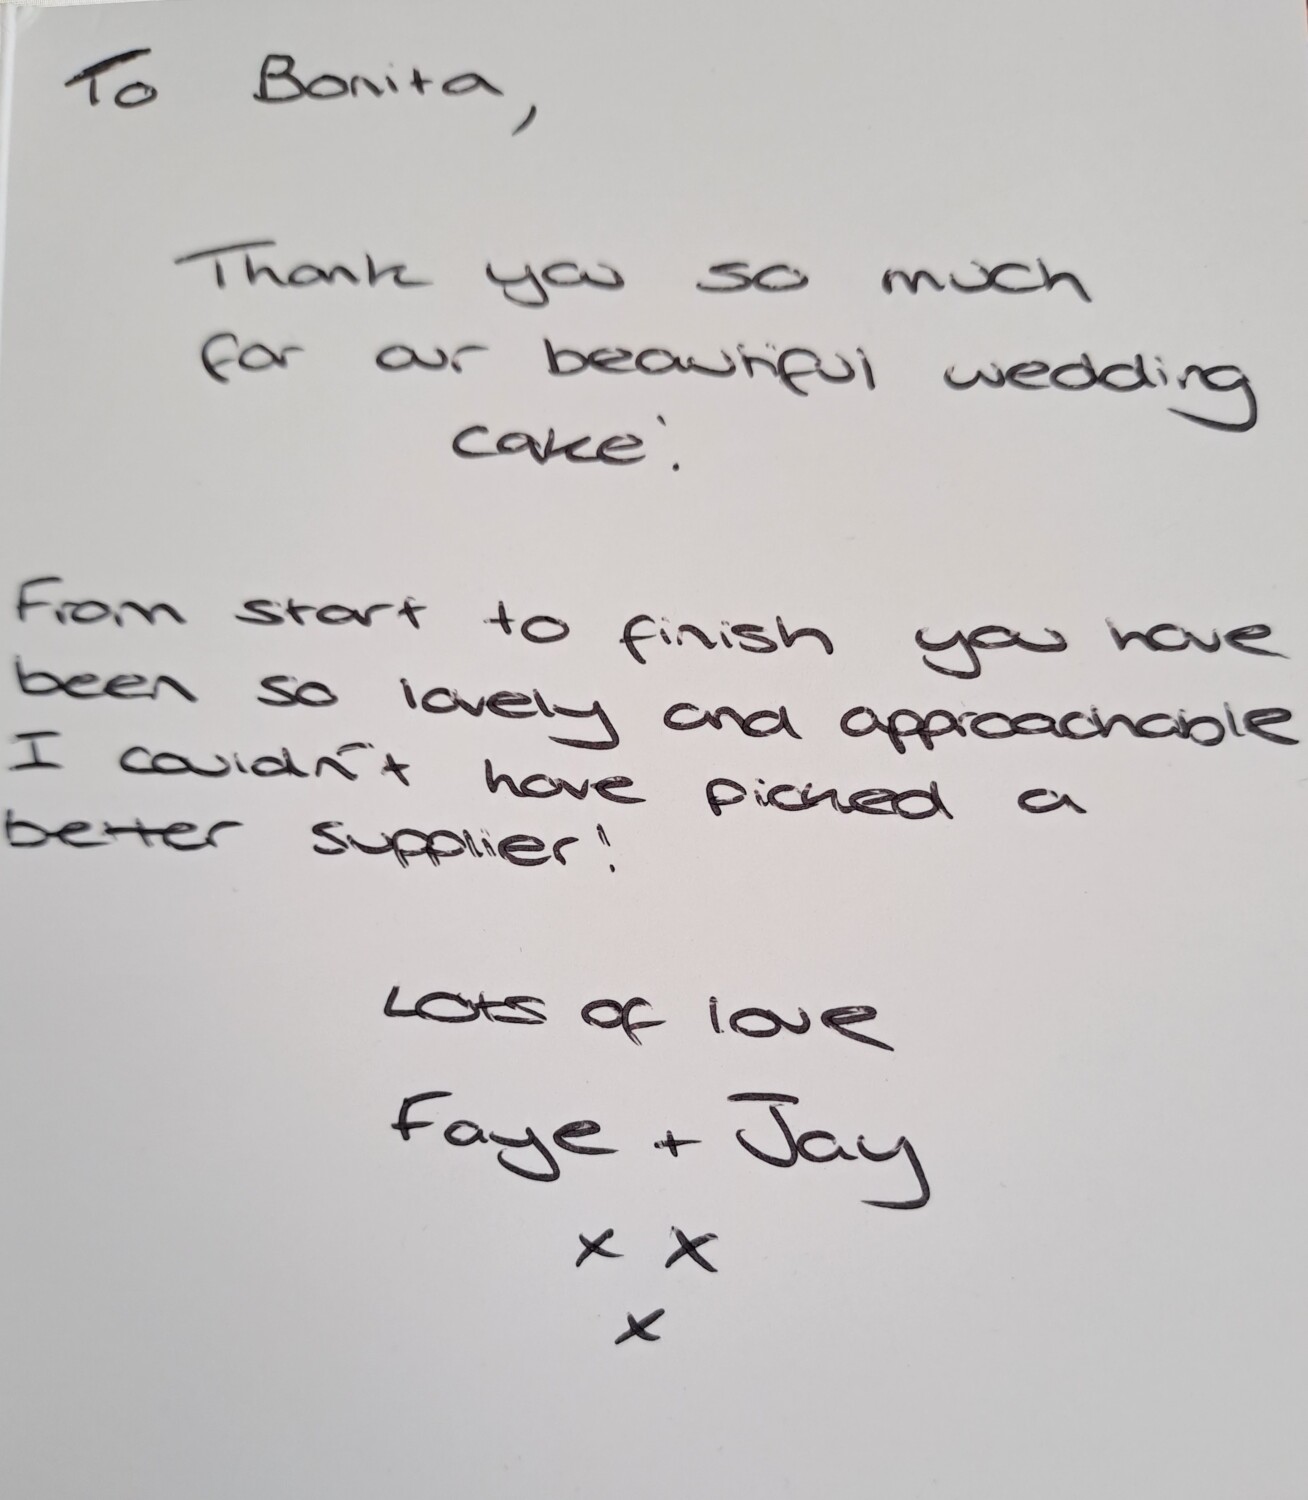 To Bonita,
Thank you so much
for our beautiful wedding
cake!
From start to finish you have
been so lovely and approachable
I couldn't have picked a
better supplier!
Lots of love
Faye + Jay
x x
x